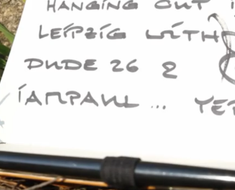 HANGING OUT
LEIPZIG WITH
DUDE 26 &
IAMPAUL ... YEP